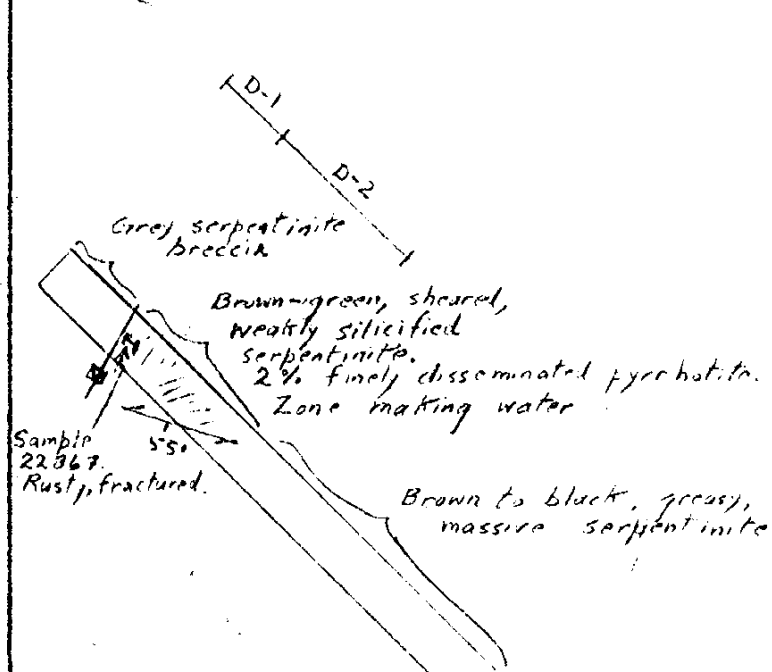 D-1
D-2
Grey serpentinite
breccia
Brown-green, sheared,
weakly silicified
serpentinite.
2% finely disseminated pyrrhotite.
Zone making water
Sample
22367.
Rusty, fractured.
55°
Brown to black, greasy,
massive serpentinite